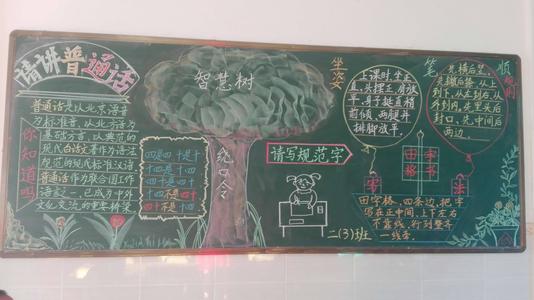 请讲普通话
你知道吗
普通话是以北京语音
为标准音，以北方话为
基础方言，以典范的
现代白话文著作为语法
规范的现代标准汉语，
普通话作为联合国工作
语言之一，已成为中外
文化交流的重要桥梁
智慧树
绕口令
四是四 十是十
十四是十四
四十是四十
十四不是四十
四十不是十四
坐姿
上课时坐正
直，头摆正，肩放
平，身子挺直稍
前倾，两腿并
排脚放平。
请写规范字
二(3)班
笔顺
先横后竖，
先撇后捺，从上
到下，从左到右，从
外到内，先里头后
封口，先中间后
两边。
田字
格书
写
法
田字格，四条边，把字
写在正中间，上下左右
不靠线，行到整齐
一线牵。